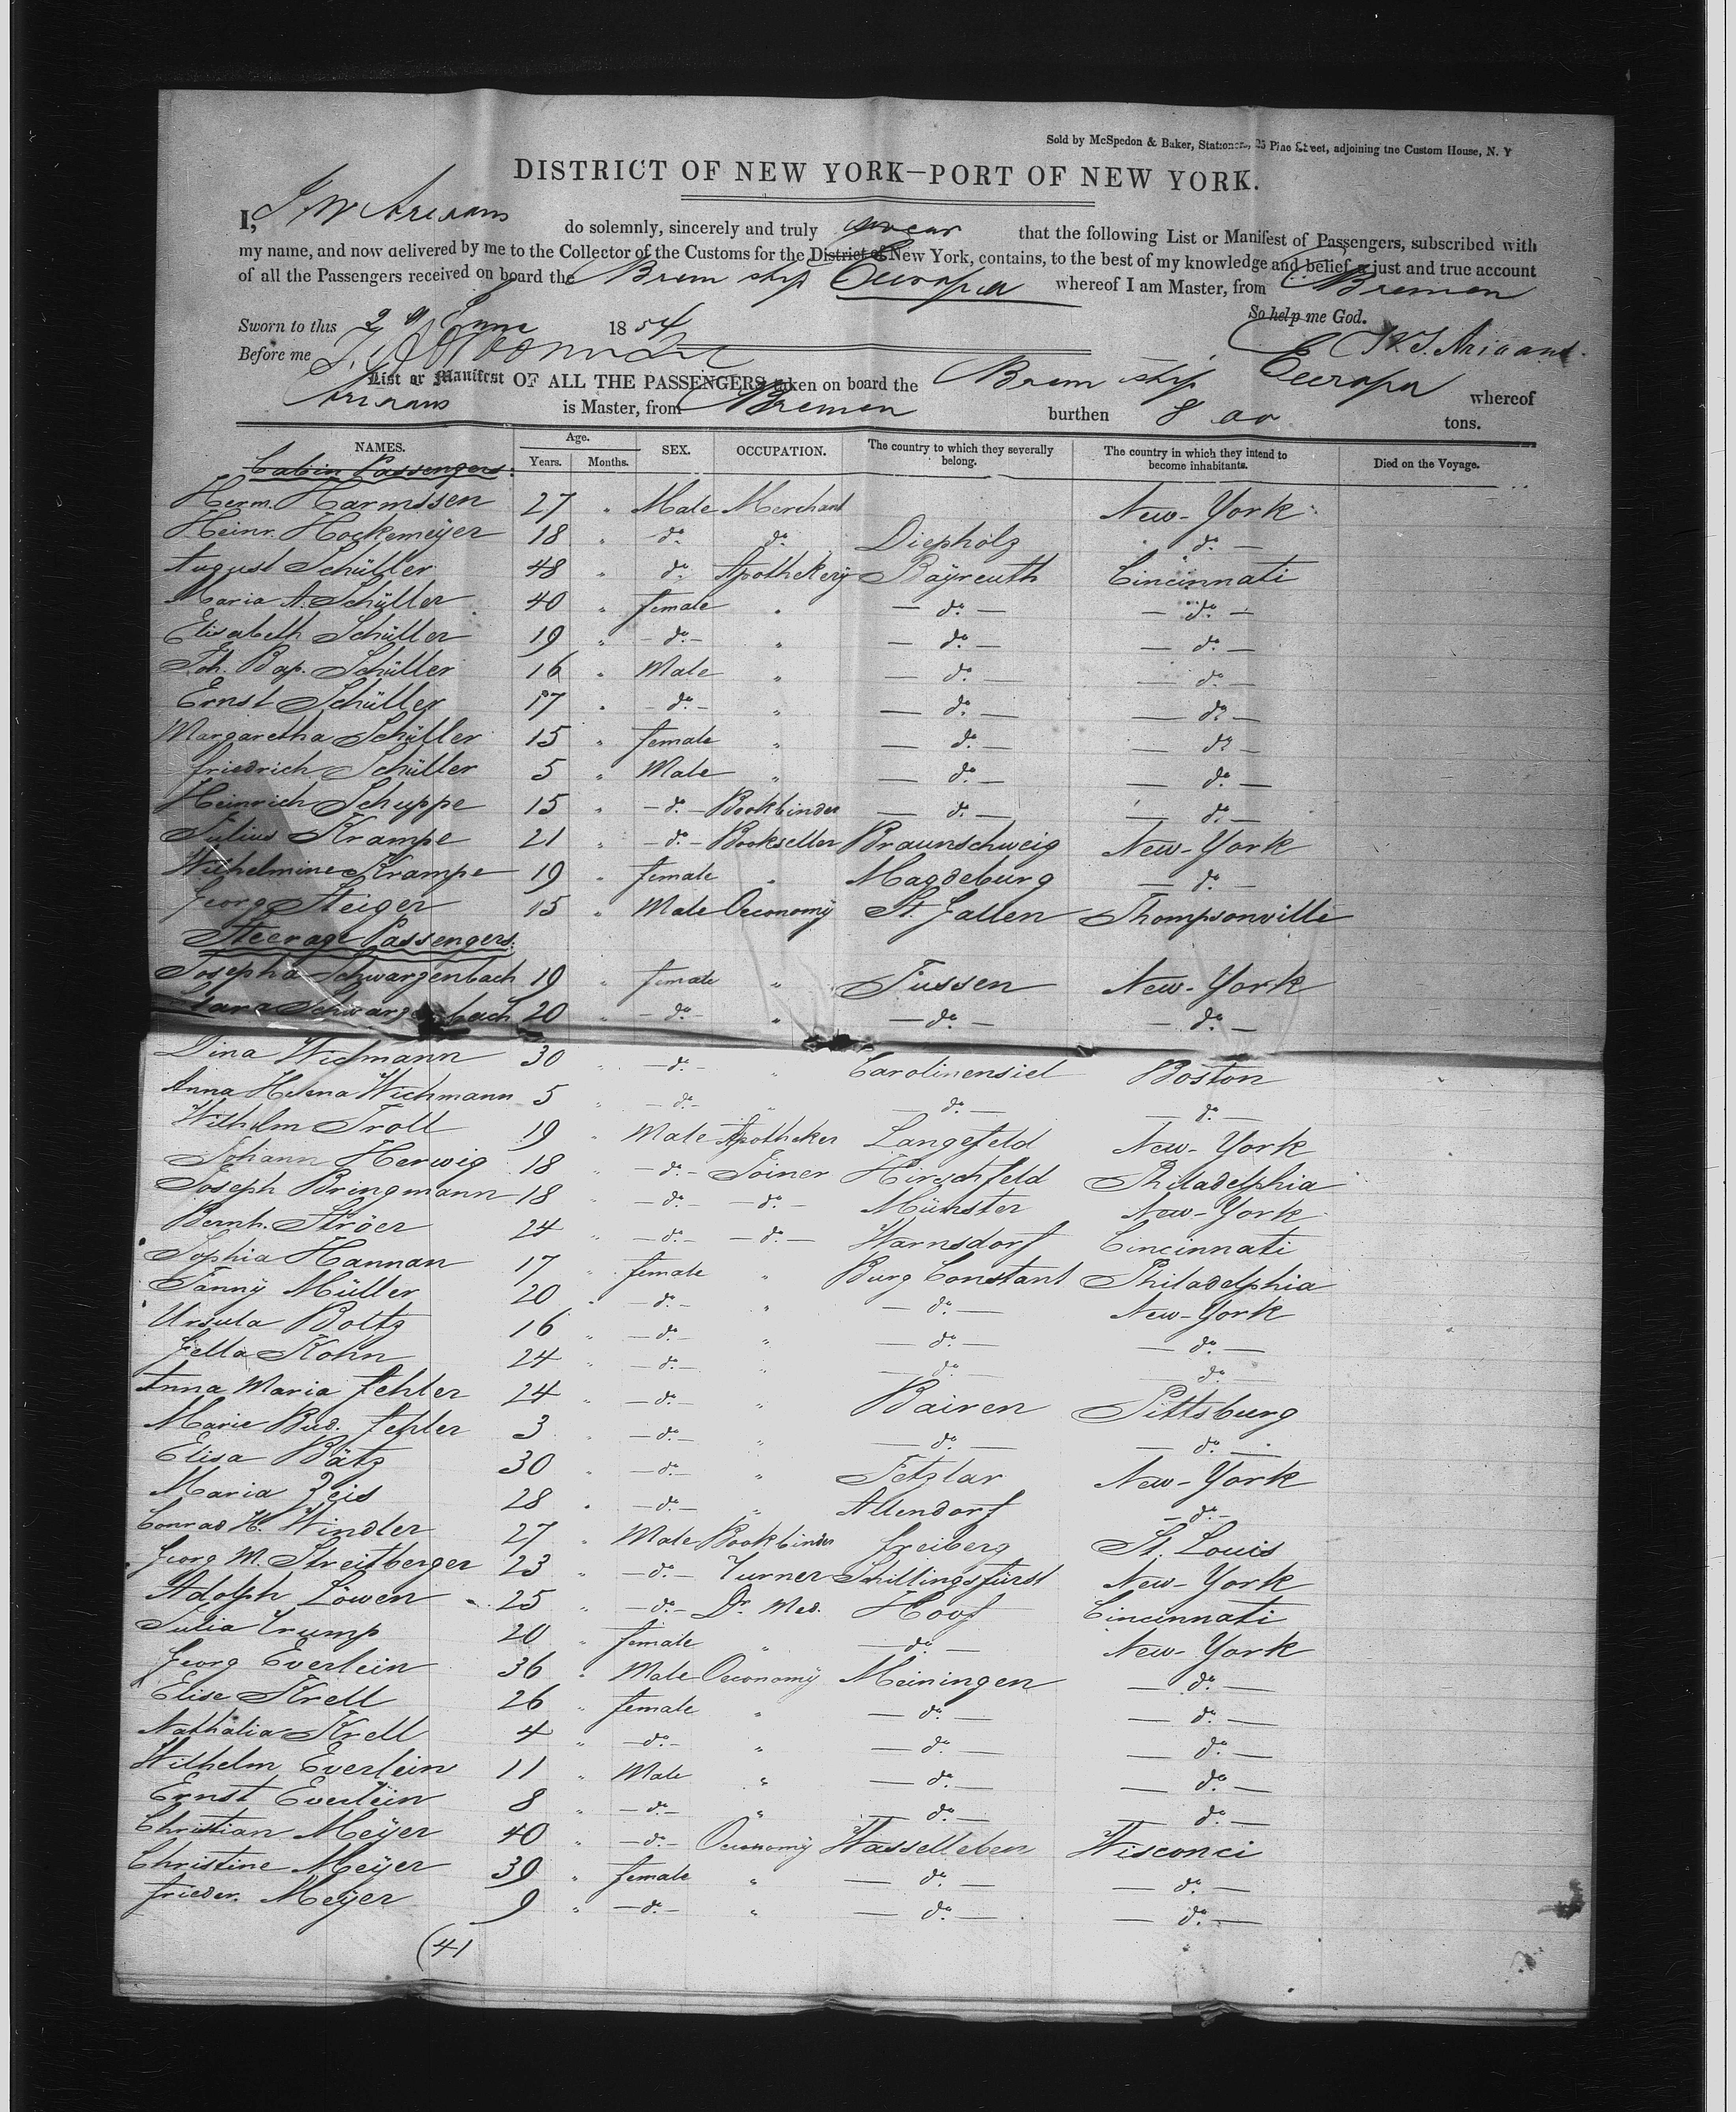 Sold by McSpedon & Baker, Stationers, 25 Pine Street, adjoining the Custom House, N. Y
DISTRICT OF NEW YORK—PORT OF NEW YORK.
I, do solemnly, sincerely and truly swear that the following List or Manifest of Passengers, subscribed with
my name, and now delivered by me to the Collector of the Customs for the District of New York, contains, to the best of my knowledge and belief, a just and true account
of all the Passengers received on board the Brem ship Europa whereof I am Master, from Bremen
So help me God.
Sworn to this 2 June 1854
Before me
List or Manifest OF ALL THE PASSENGERS taken on board the Brem ship Europa whereof
is Master, from Bremen burthen 8 tons.
NAMES. Age. Years. Months. SEX. OCCUPATION. The country to which they severally belong. The country in which they intend to become inhabitants. Died on the Voyage.
Cabin Passengers.
Herm. Harmssen 27 " Male Merchant New-York
Heinr. Hockemeÿer 18 " do do Diepholz do
August Schüller 48 " do Apothekerÿ Baÿreuth Cincinnati
Maria A. Schüller 40 " female " do do
Elisabeth Schüller 19 " do " do do
Joh. Bap. Schüller 16 " Male " do do
Ernst Schüller 17 " do " do do
Margaretha Schüller 15 " female " do do
Friedrich Schüller 5 " Male " do do
Heinrich Schuppe 15 " do Bookbinder do do
Julius Krampe 21 " do Bookseller Braunschweig New-York
Wilhelmine Krampe 19 " female " Magdeburg do
Georg Steiger 15 " Male Oeconomÿ St. Gallen Thompsonville
Steerage Passengers.
Josepha Schwarzenbach 19 " female " Fussen New-York
Schwarzenbach 20 " do " do do
Dina Wichmann 30 " do " Carolinensiel Boston
Anna Helena Wichmann 5 " do " do do
Wilhelm Troll 19 " Male Apotheker Langefeld New-York
Johann Herwig 18 " do Joiner Hirschfeld Philadelphia
Joseph Bringmann 18 " do do Münster New-York
Bernh. Ströer 24 " do do Warnsdorf Cincinnati
Sophia Hannan 17 " female " Burg Constant Philadelphia
Fanny Müller 20 " do " do New-York
Ursula Boltz 16 " do " do do
Jella Kohn 24 " do " do do
Anna Maria Fehler 24 " do " Bairen Pittsburg
Marie Bud. Fehler 3 " do " do do
Elisa Bätz 30 " do " Fetzlar New-York
Maria Zeis 28 " do " Allendorf do
Conrad H. Windler 27 " Male Bookbinder Freiberg St. Louis
Georg M. Streitberger 23 " do Turner Schillingsfürst New-York
Adolph Löwen 25 " do Dr. Med. Hoof Cincinnati
Julia Trump 20 " female " do New-York
Georg Everlein 36 " Male Oeconomÿ Meiningen do
Elise Krell 26 " female " do do
Nathalia Krell 4 " do " do do
Wilhelm Everlein 11 " Male " do do
Ernst Everlein 8 " do " do do
Christian Meÿer 40 " do Oeconomÿ Wasselleben Wisconci
Christine Meÿer 39 " female " do do
Frieder. Meÿer 9 " do " do do
(41